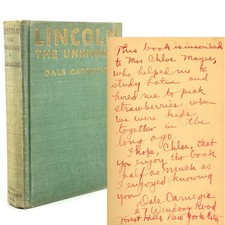 LINCOLN
THE UNKNOWN
DALE CARNEGIE
This book is inscribed
to Mrs Chloe Mayes,
who helped me to
study Latin and
hired me to pick
strawberries when
we were kids
together in the
long ago.
I hope, Chloe, that
you enjoy the book
half as much as
I enjoyed knowing
you
Dale Carnegie
27 Wendover Road
Forest Hills New York City